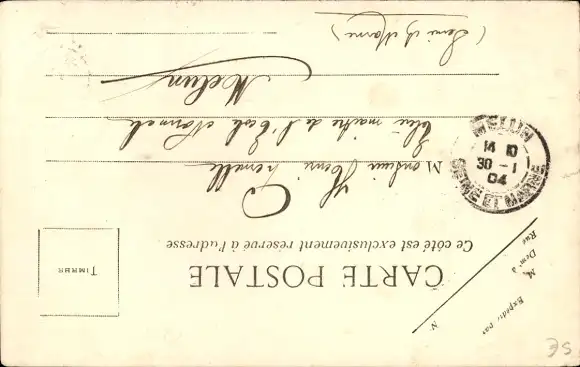 CARTE POSTALE
Ce côté est exclusivement réservé à l'adresse
TIMBRE
N.
Expédié par
M.
Dem t à
Rue
Monsieur Henri
Elève maître de l'Ecole Normale
Melun
(Seine et Marne)
MELUN
14 10
30 - 1
04
SEINE ET MARNE
35